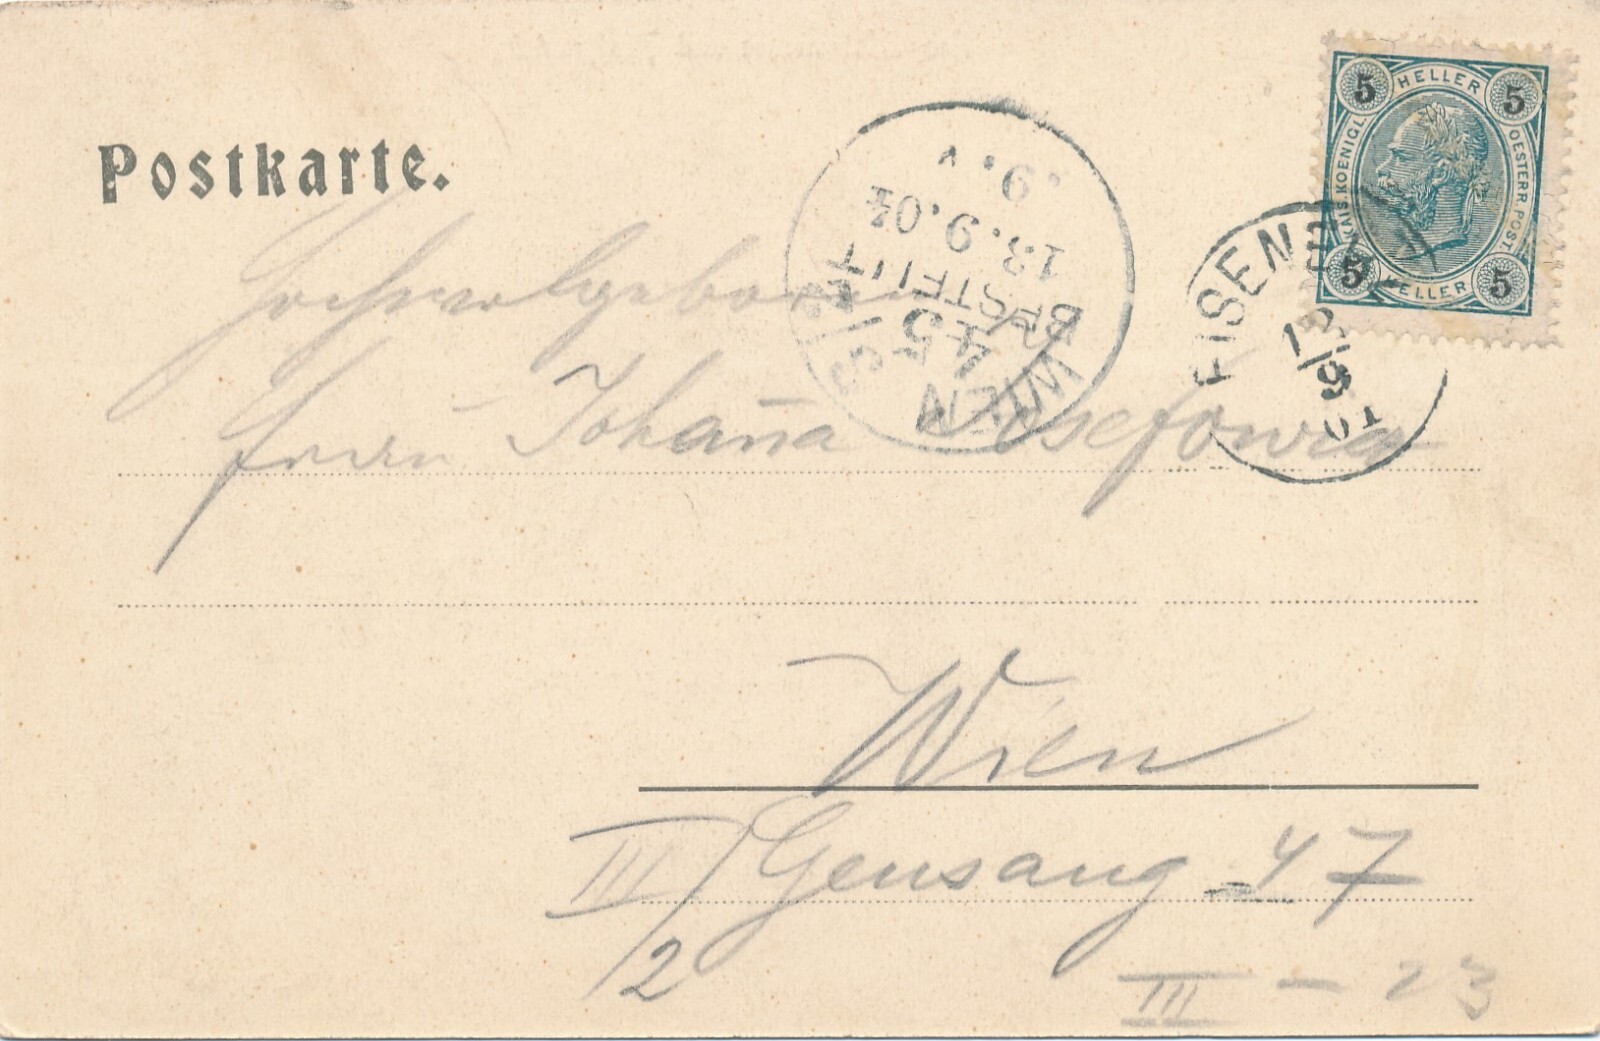 Postkarte.
5 HELLER 5
KAIS. KOENIGL.
OESTERR. POST.
5 HELLER 5
EISENE
13/9
01
WIEN
45
BESTELLT
13.9.01
.9.V
Hochwolgeboren
Frau Johanna Josefowicz
Wien
III/2 Gensaug 47
III - 23